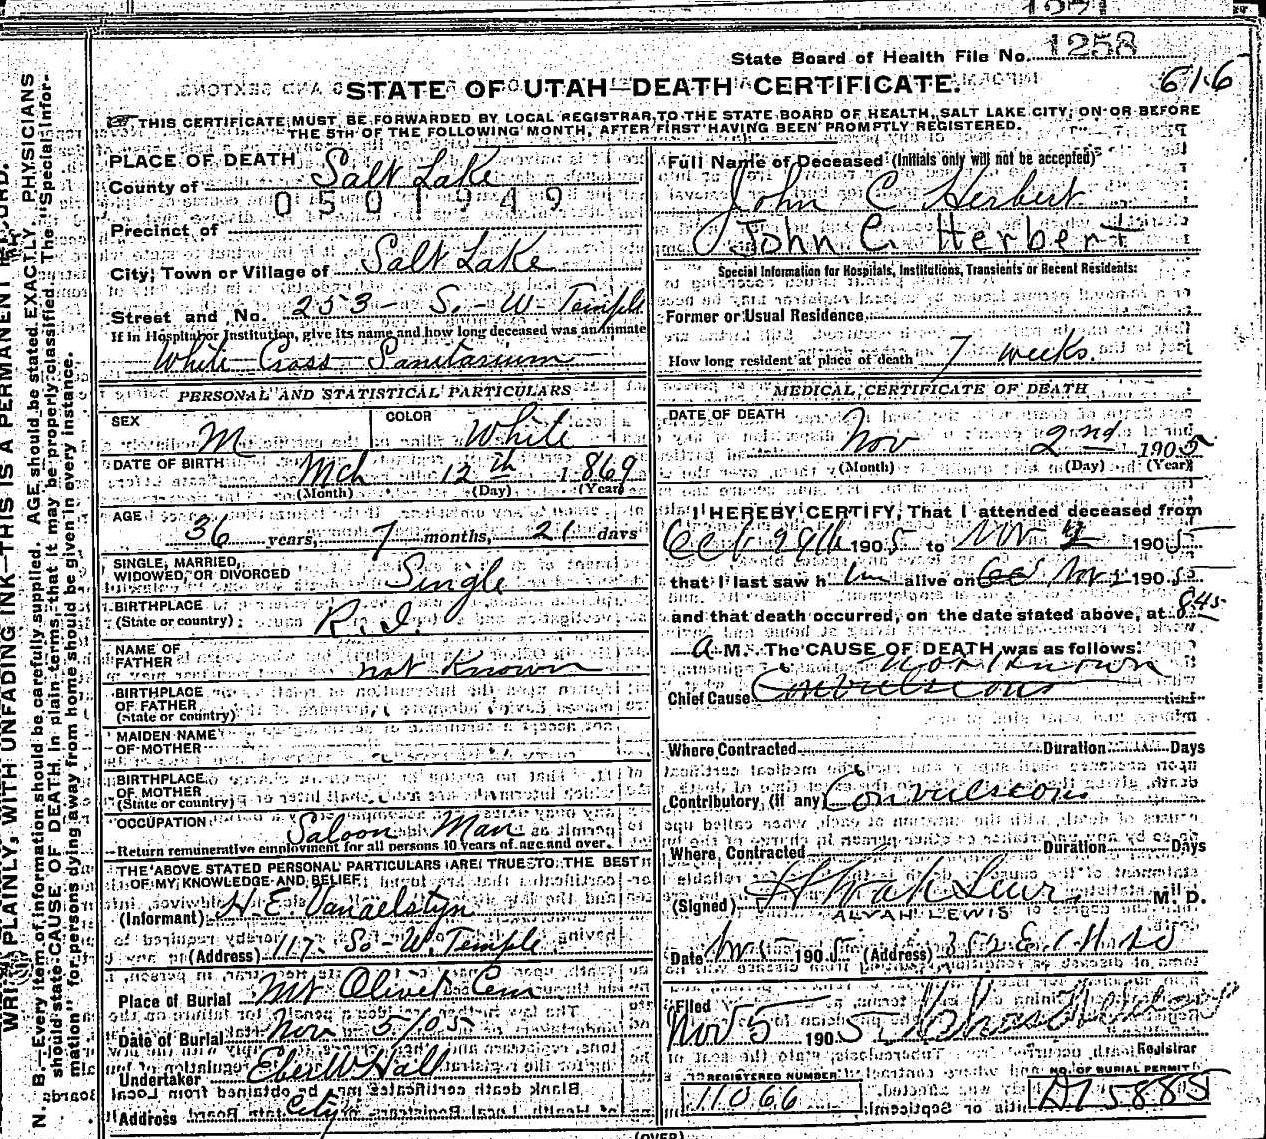 1258
State Board of Health File No.
616
STATE OF UTAH—DEATH CERTIFICATE.
THIS CERTIFICATE MUST BE FORWARDED BY LOCAL REGISTRAR TO THE STATE BOARD OF HEALTH, SALT LAKE CITY, ON OR BEFORE
THE 5TH OF THE FOLLOWING MONTH, AFTER FIRST HAVING BEEN PROMPTLY REGISTERED.
WRITE PLAINLY, WITH UNFADING INK—THIS IS A PERMANENT RECORD.
N. B.—Every item of information should be carefully supplied. AGE should be stated EXACTLY. PHYSICIANS
should state CAUSE OF DEATH in plain terms, that it may be properly classified. The "Special Infor-
mation" for persons dying away from home should be given in every instance.
PLACE OF DEATH
County of Salt Lake
0501949
Precinct of
City, Town or Village of Salt Lake
Street and No. 253 - So. - W - Temple
If in Hospital or Institution, give its name and how long deceased was an inmate
White Cross Sanitarium
PERSONAL AND STATISTICAL PARTICULARS
SEX M
COLOR White
DATE OF BIRTH Mch 12th 1869
(Month) (Day) (Year)
AGE 36 years, 7 months, 21 days
SINGLE, MARRIED,
WIDOWED, OR DIVORCED Single
BIRTHPLACE
(State or country) R. I.
NAME OF
FATHER not Known
BIRTHPLACE
OF FATHER
(State or country)
MAIDEN NAME
OF MOTHER
BIRTHPLACE
OF MOTHER
(State or country)
OCCUPATION Saloon Man
Return remunerative employment for all persons 10 years of age and over.
THE ABOVE STATED PERSONAL PARTICULARS ARE TRUE TO THE BEST
OF MY KNOWLEDGE AND BELIEF
(Informant) H. E. Vanaelstyn
(Address) 117 So - W. Temple
Place of Burial Mt Olivet Cem
Date of Burial Nov 5/05
Undertaker Eber W Hall
Address City
Full Name of Deceased (Initials only will not be accepted)
John C Herbert
John C. Herbert
Special Information for Hospitals, Institutions, Transients or Recent Residents:
Former or Usual Residence
How long resident at place of death 7 weeks.
MEDICAL CERTIFICATE OF DEATH
DATE OF DEATH
Nov 2nd 1905
(Month) (Day) (Year)
I HEREBY CERTIFY, That I attended deceased from
Oct 29th 1905 to Nov 2 1905
that I last saw him alive on Nov 1 1905
and that death occurred, on the date stated above, at 8.45
A M. The CAUSE OF DEATH was as follows:
Not Known
Chief Cause Convulsions
Where Contracted Duration Days
Contributory (if any) Convulsions
Where Contracted Duration Days
(Signed) Alvah Lewis M. D.
ALVAH LEWIS
Date 1905 (Address)
Filed
Nov 5 1905
Registrar
REGISTERED NUMBER
11066
NO. OF BURIAL PERMIT
D15885
(OVER)